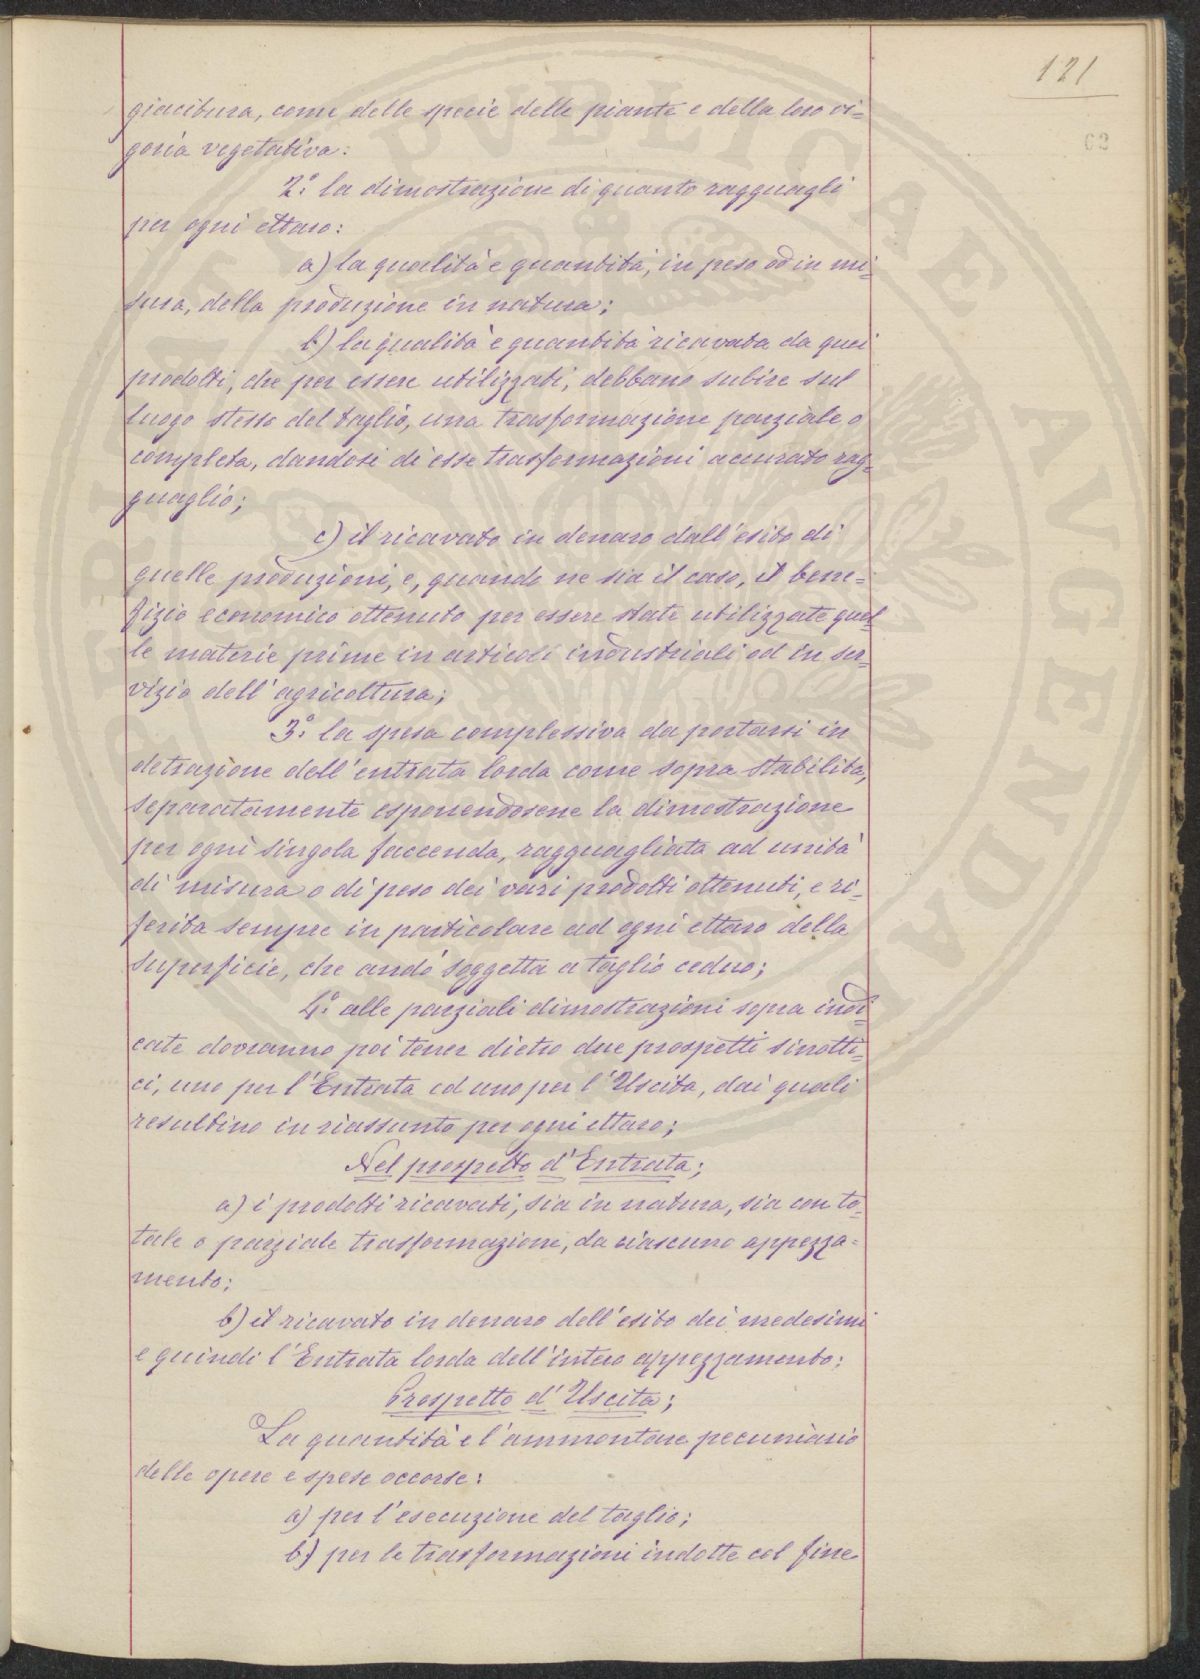 121
62
giacitura, come delle specie delle piante e della loro vi=
goria vegetativa:
2.° la dimostrazione di quanto ragguagli
per ogni ettaro:
a) la qualità e quantità, in peso od in mi=
sura, della produzione in natura;
b) la qualità e quantità ricavata da quei
prodotti, che per essere utilizzati, debbano subire sul
luogo stesso del taglio, una trasformazione parziale o
completa, dandosi di esse trasformazioni accurato rag=
guaglio;
c) il ricavato in denaro dall'esito di
quelle produzioni, e, quando ne sia il caso, il bene=
fizio economico ottenuto per essere state utilizzate quel=
le materie prime in articoli industriali od in ser=
vizio dell'agricoltura;
3.° la spesa complessiva da portarsi in
detrazione dell'entrata lorda come sopra stabilita,
separatamente esponendosene la dimostrazione
per ogni singola faccenda, ragguagliata ad unità
di misura o di peso dei vari prodotti ottenuti, e ri=
ferita sempre in particolare ad ogni ettaro della
superficie, che andò soggetta a taglio ceduo;
4.° alle parziali dimostrazioni sopra indi=
cate dovranno poi tener dietro due prospetti sinotti=
ci, uno per l'Entrata ed uno per l'Uscita, dai quali
resultino in riassunto per ogni ettaro;
Nel prospetto d'Entrata;
a) i prodotti ricavati, sia in natura, sia con to=
tale o parziale trasformazione, da ciascuno appezza=
mento;
b) il ricavato in denaro dell'esito dei medesimi
e quindi l'Entrata lorda dell'intero appezzamento;
Prospetto d'Uscita;
La quantità e l'ammontare pecuniario
delle opere e spese occorse:
a) per l'esecuzione del taglio;
b) per le trasformazioni indotte col fine
PVBLICAE AVGENDAE